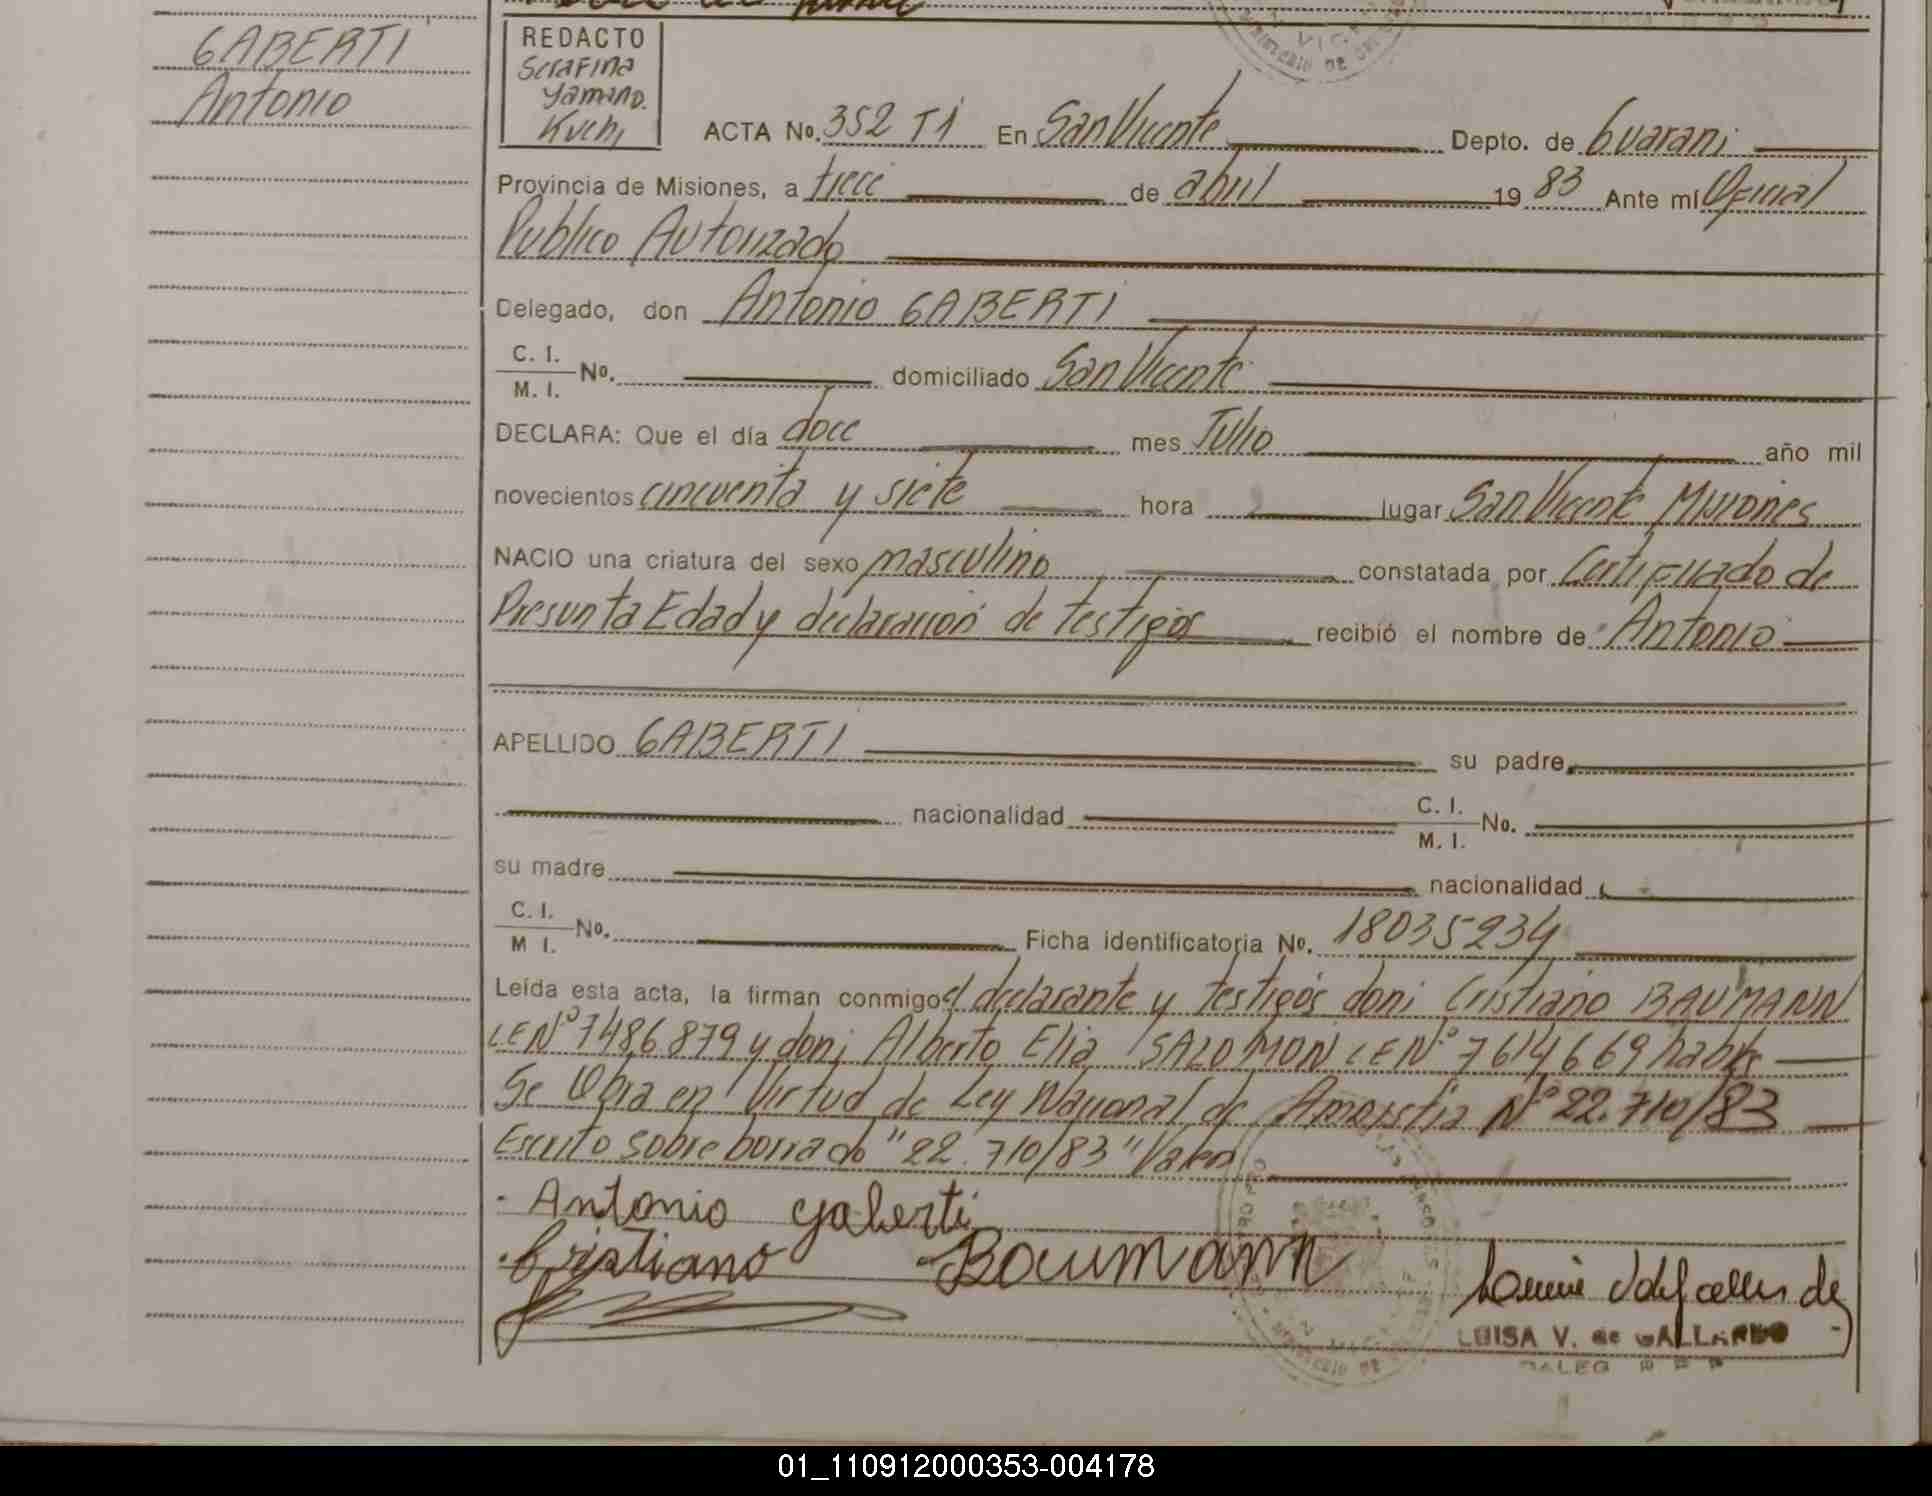 GABERTI
Antonio
REDACTO
Serafina
Yamano.
Kuchi
ACTA No. 352 T1 En San Vicente Depto. de Guarani
Provincia de Misiones, a trece de abril 1983 Ante mí Oficial
Publico Autorizado
Delegado, don Antonio GABERTI
C. I.
M. I. No. domiciliado San Vicente
DECLARA: Que el día doce mes Julio año mil
novecientos cincuenta y siete hora lugar San Vicente Misiones
NACIO una criatura del sexo masculino constatada por Certificado de
Presunta Edad y declaración de testigos recibió el nombre de Antonio
APELLIDO GABERTI su padre
nacionalidad C. I.
M. I. No.
su madre nacionalidad
C. I.
M I. No. Ficha identificatoria No. 18035234
Leída esta acta, la firman conmigo el declarante y testigos don: Cristiano BAUMANN
LE Nº 7486879 y don: Alberto Elia SALOMON LE Nº 7614669 habs
Se Obra en Virtud de Ley Nacional de Amnistia Nº 22.710/83
Escrito sobre borrado "22.710/83" Valen
Antonio gaberti
Cristiano Baumann
LUISA V. de GALLARDO
01_110912000353-004178